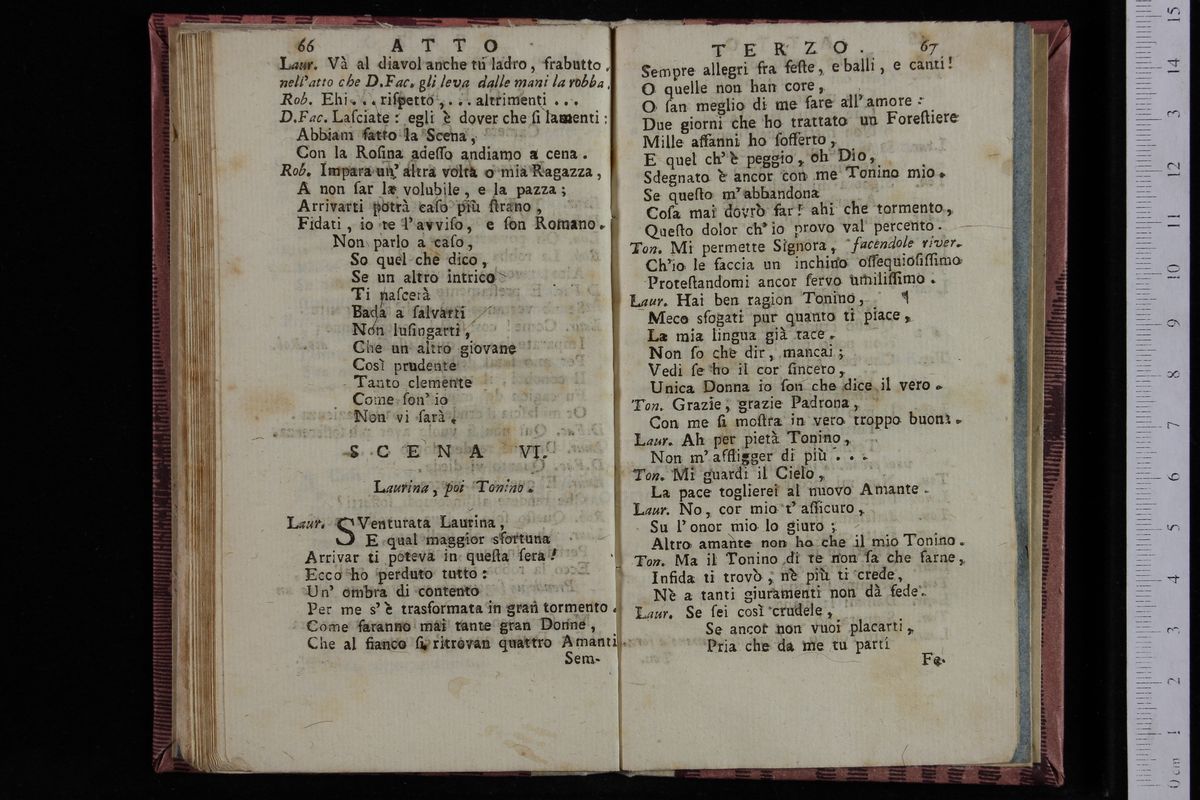 66 ATTO
Laur. Và al diavol anche tù ladro, frabutto.
nell'atto che D.Fac. gli leva dalle mani la robba.
Rob. Ehi... riſpetto,... altrimenti ...
D.Fac. Laſciate: egli è dover che ſi lamenti:
Abbiam fatto la Scena,
Con la Roſina adeſſo andiamo a cena.
Rob. Impara un' altra volta o mia Ragazza,
A non far la volubile, e la pazza;
Arrivarti potrà caſo più ſtrano,
Fidati, io te l'avviſo, e ſon Romano.
Non parlo a caſo,
So quel che dico,
Se un altro intrico
Ti naſcerà
Bada a ſalvarti
Non luſingarti,
Che un altro giovane
Così prudente
Tanto clemente
Come ſon' io
Non vi ſarà.
SCENA VI.
Laurina, poi Tonino.
Laur. SVenturata Laurina,
E qual maggior sfortuna
Arrivar ti poteva in queſta ſera!
Ecco hò perduto tutto:
Un' ombra di contento
Per me s'è trasformata in gran tormento.
Come faranno mai tante gran Donne,
Che al fianco ſi ritrovan quattro Amanti
Sem-
TERZO. 67
Sempre allegri fra feſte, e balli, e canti!
O quelle non han core,
O ſan meglio di me fare all' amore:
Due giorni che ho trattato un Foreſtiere
Mille affanni ho ſofferto,
E quel ch'è peggio, oh Dio,
Sdegnato è ancor con me Tonino mio.
Se queſto m'abbandona
Coſa mai dovrò far! ahi che tormento,
Queſto dolor ch'io provo val percento.
Ton. Mi permette Signora, facendole river.
Ch'io le faccia un inchino oſſequioſiſſimo
Proteſtandomi ancor ſervo umiliſſimo.
Laur. Hai ben ragion Tonino,
Meco sfogati pur quanto ti piace,
La mia lingua già tace.
Non ſo che dir, mancai;
Vedi ſe ho il cor ſincero,
Unica Donna io ſon che dice il vero.
Ton. Grazie, grazie Padrona,
Con me ſi moſtra in vero troppo buona.
Laur. Ah per pietà Tonino,
Non m'affligger di più ...
Ton. Mi guardi il Cielo,
La pace toglierei al nuovo Amante.
Laur. No, cor mio t' aſſicuro,
Su l'onor mio lo giuro;
Altro amante non ho che il mio Tonino.
Ton. Ma il Tonino di te non ſa che farne,
Infida ti trovò, nè più ti crede,
Nè a tanti giuramenti non dà fede.
Laur. Se ſei così crudele,
Se ancor non vuoi placarti,
Pria che da me tu parti
Fe-
0 cm 1 2 3 4 5 6 7 8 9 10 11 12 13 14 15